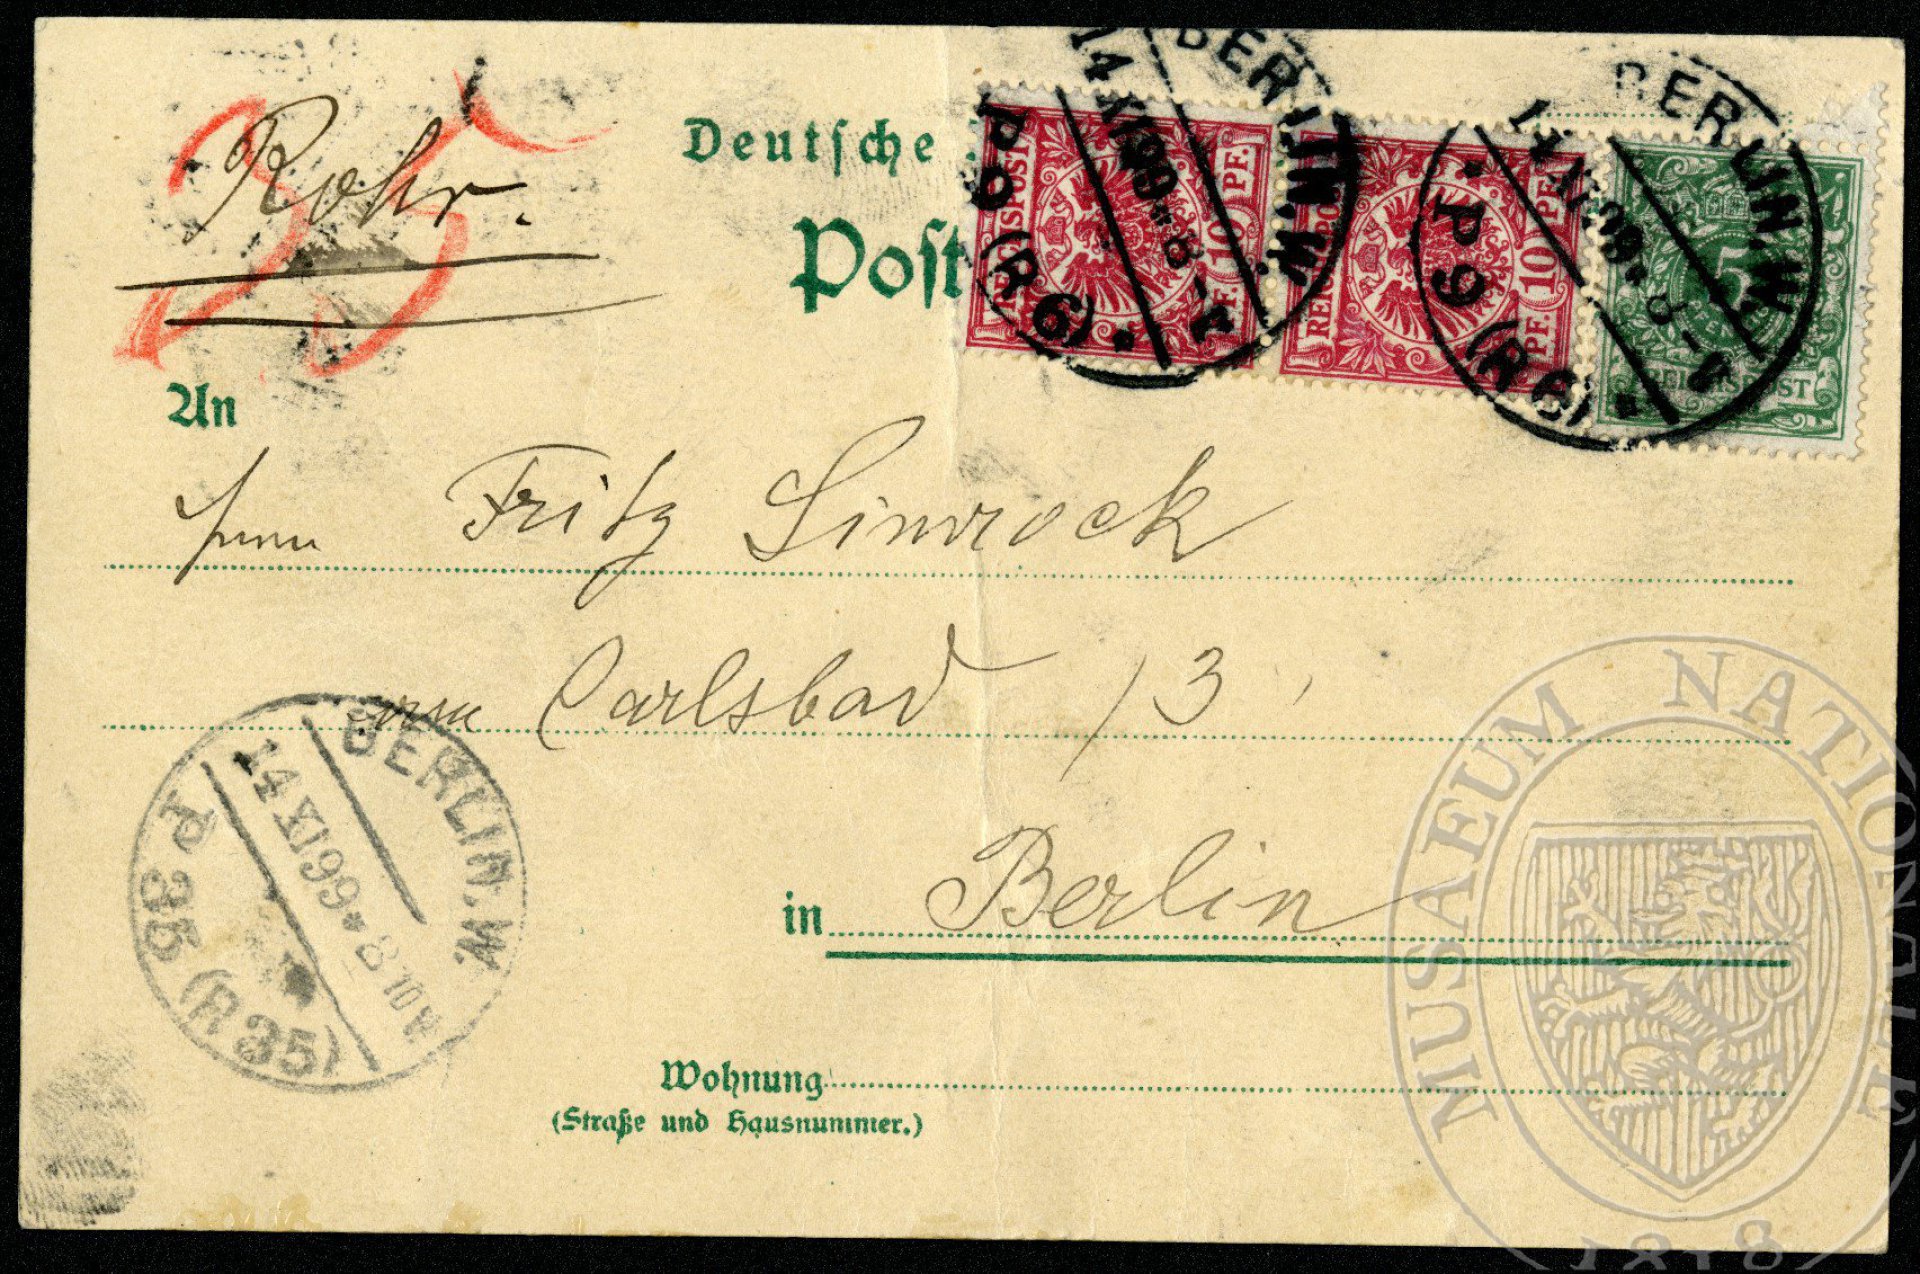 Rohr.
35
Deutsche
Post
REICHSPOST 10 PF.
REICHSPOST 10 PF.
5 PFENNIG
REICHSPOST
BERLIN.W.
14 XI 99 * 8-
P 9 (R 6)
BERLIN.W.
14 XI 99 * 8-
P 9 (R 6)
An
Herrn Fritz Simrock
Carlsbad 13
in Berlin
BERLIN.W.
14 XI 99 * 8 10
P 35 (R 35)
Wohnung
(Straße und Hausnummer.)
MUSAEUM NATIONALE
1818